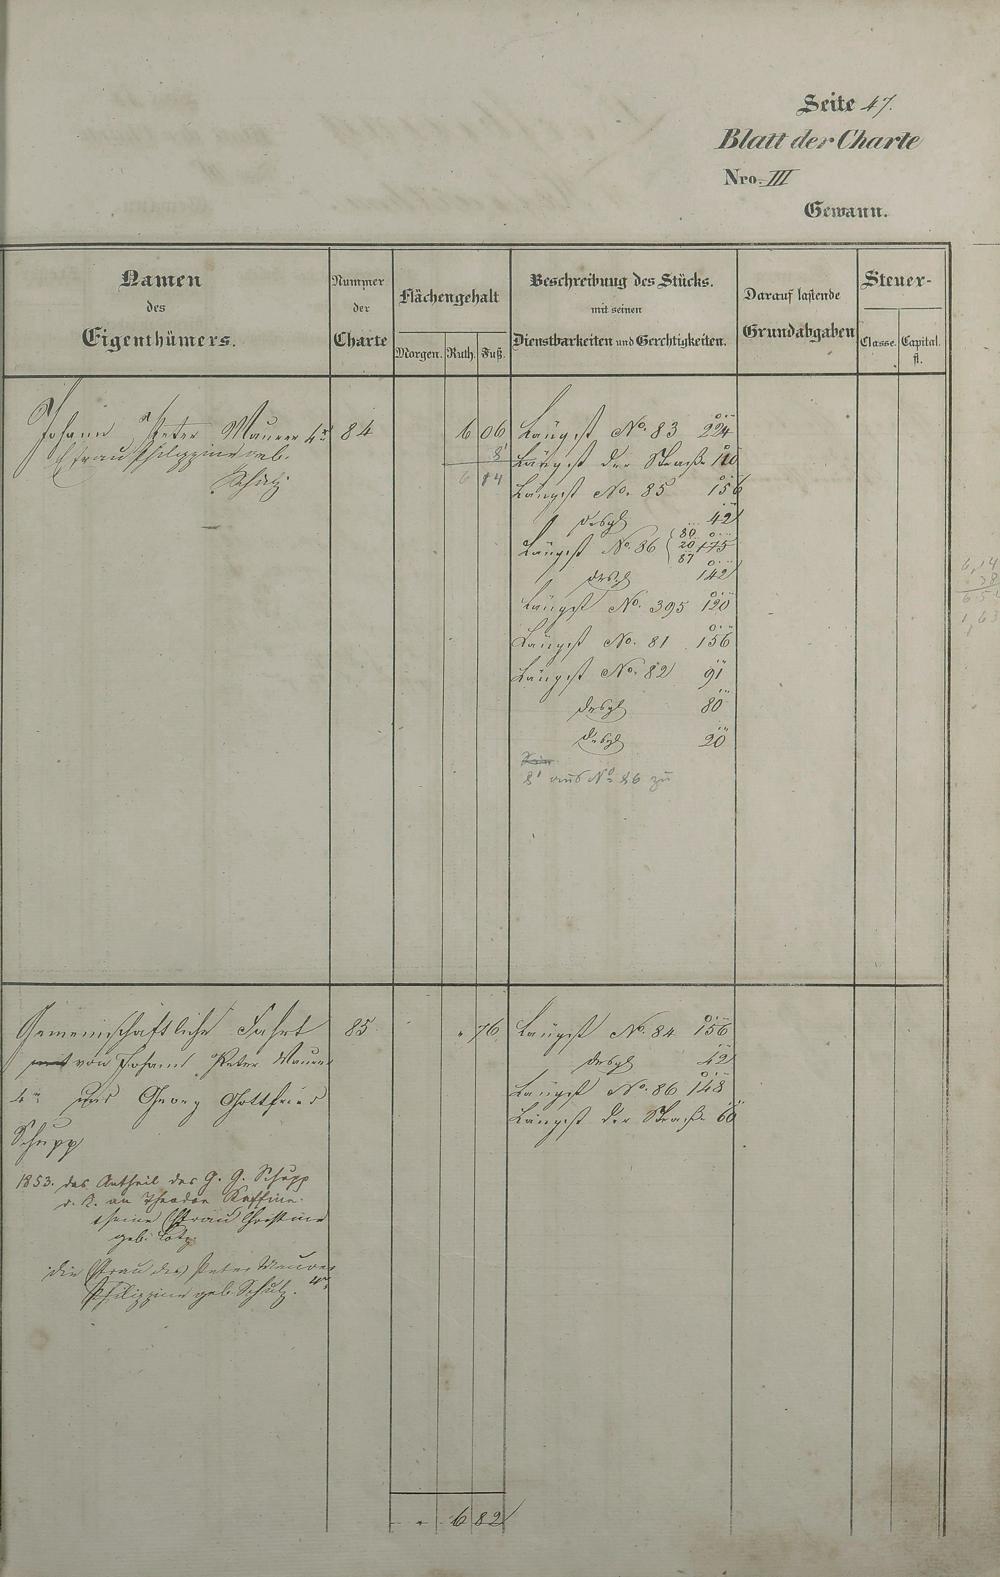 Seite 47.
Blatt der Charte
Nro. III
Gewann.
Namen des Eigenthümers.
Nummer der Charte
Flächengehalt
Morgen. Ruth. Fuß.
Beschreibung des Stücks. mit seinen Dienstbarkeiten und Gerechtigkeiten.
Darauf lastende Grundabgaben
Steuer-
Classe. Capital. fl.
Johann Peter Maurer 4r 84 6 06 Längst No. 83 224
Efrau Philippine geb. 8 Längst der Straße 110
Schütz 6 14 Längst No. 85 156
desgl 42
Längst No. 86 80 20 87 175
desgl 142
Längst No. 395 120
Längst No. 81 156
Längst No. 82 91
desgl 80
desgl 20
8' aus No 86 zu
6,14
38
6.52
1,63
Gemeinschaftliche Fahrt 85 " 76 Längst No. 84 156
von Johann Peter Maurer desgl 42
4r und Georg Gottfried Längst No. 86 148
Schupp Längst der Straße 60
1853. das Antheil des G. G. Schupp
an Theodor
seine Efrau Christine
geb. Lotz
die Efrau des Peter Maurer 4r
Philippine geb. Schütz.
" 6 82